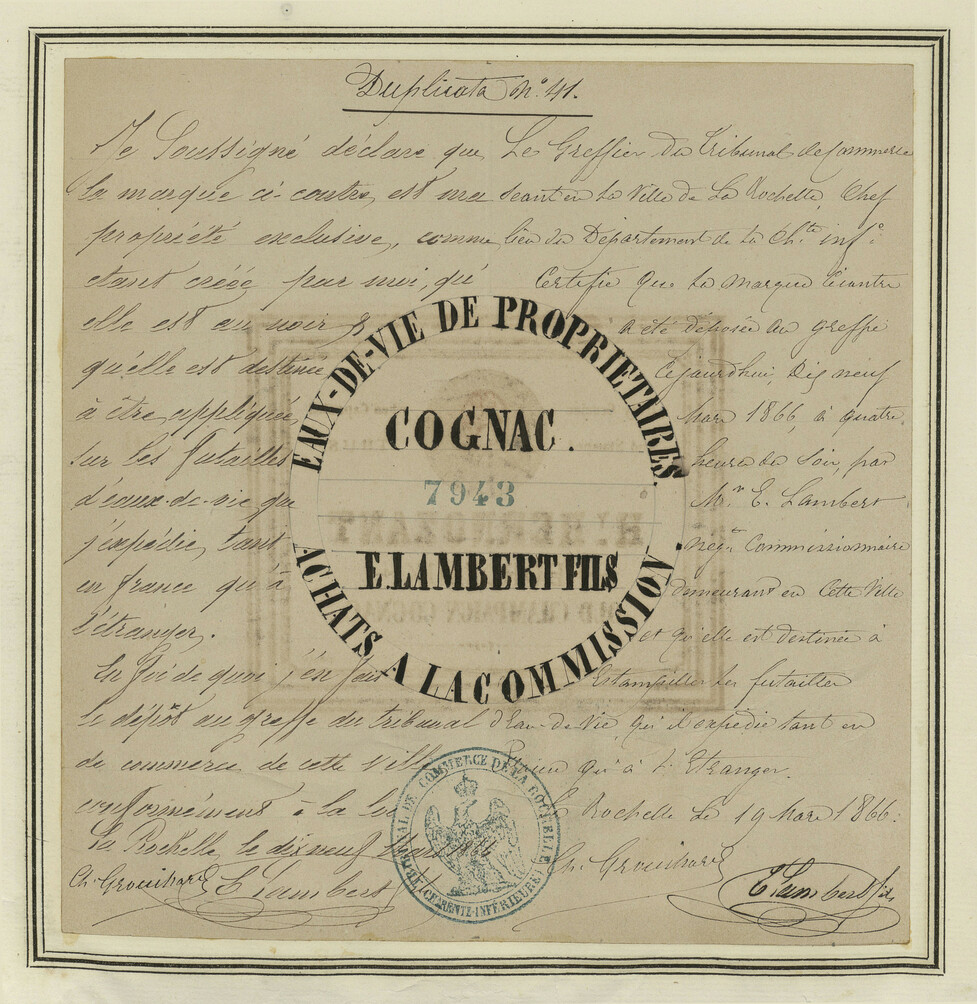 Duplicata N°. 41.
Je Soussigné déclare que
la marque ci-contre, est ma
propriété exclusive, comme
etant créée par moi, qu'
elle est au noir &
qu'elle est destinée
à être appliquée
sur les futailles
d'eaux-de-vie que
j'expédie, tant
en france qu'à
l'étranger.
En foi de quoi j'en fais
le dépôt au greffe du tribunal
de commerce de cette ville
conformément à la loi
La Rochelle, le dix neuf Mars 1866
Ch. Grouihard E Lambert
EAUX-DE-VIE DE PROPRIETAIRES.
COGNAC.
7943
E. LAMBERT FILS
ACHATS A LA COMMISSION.
Le Greffier du Tribunal de Commerce
Seant en La Ville de La Rochelle, Chef
lieu du Département de La Ch.te inf.e
Certifie que La marque Ci contre
a été déposée au greffe
Cejourdhui, Dix neuf
Mars 1866, à quatre
heures du Soir, par
M.r E. Lambert
neg.t Commissionnaire
demeurant en Cette Ville
et qu'elle est destinée à
Estampiller les futailles
d'Eau-de-Vie qu'il expédie tant en
qu'à L'Etranger.
La Rochelle Le 19 Mars 1866.
Ch. Grouihard
E Lambert fils
TRIBUNAL DE COMMERCE DE LA ROCHELLE
(CHARENTE-INFÉRIEURE)